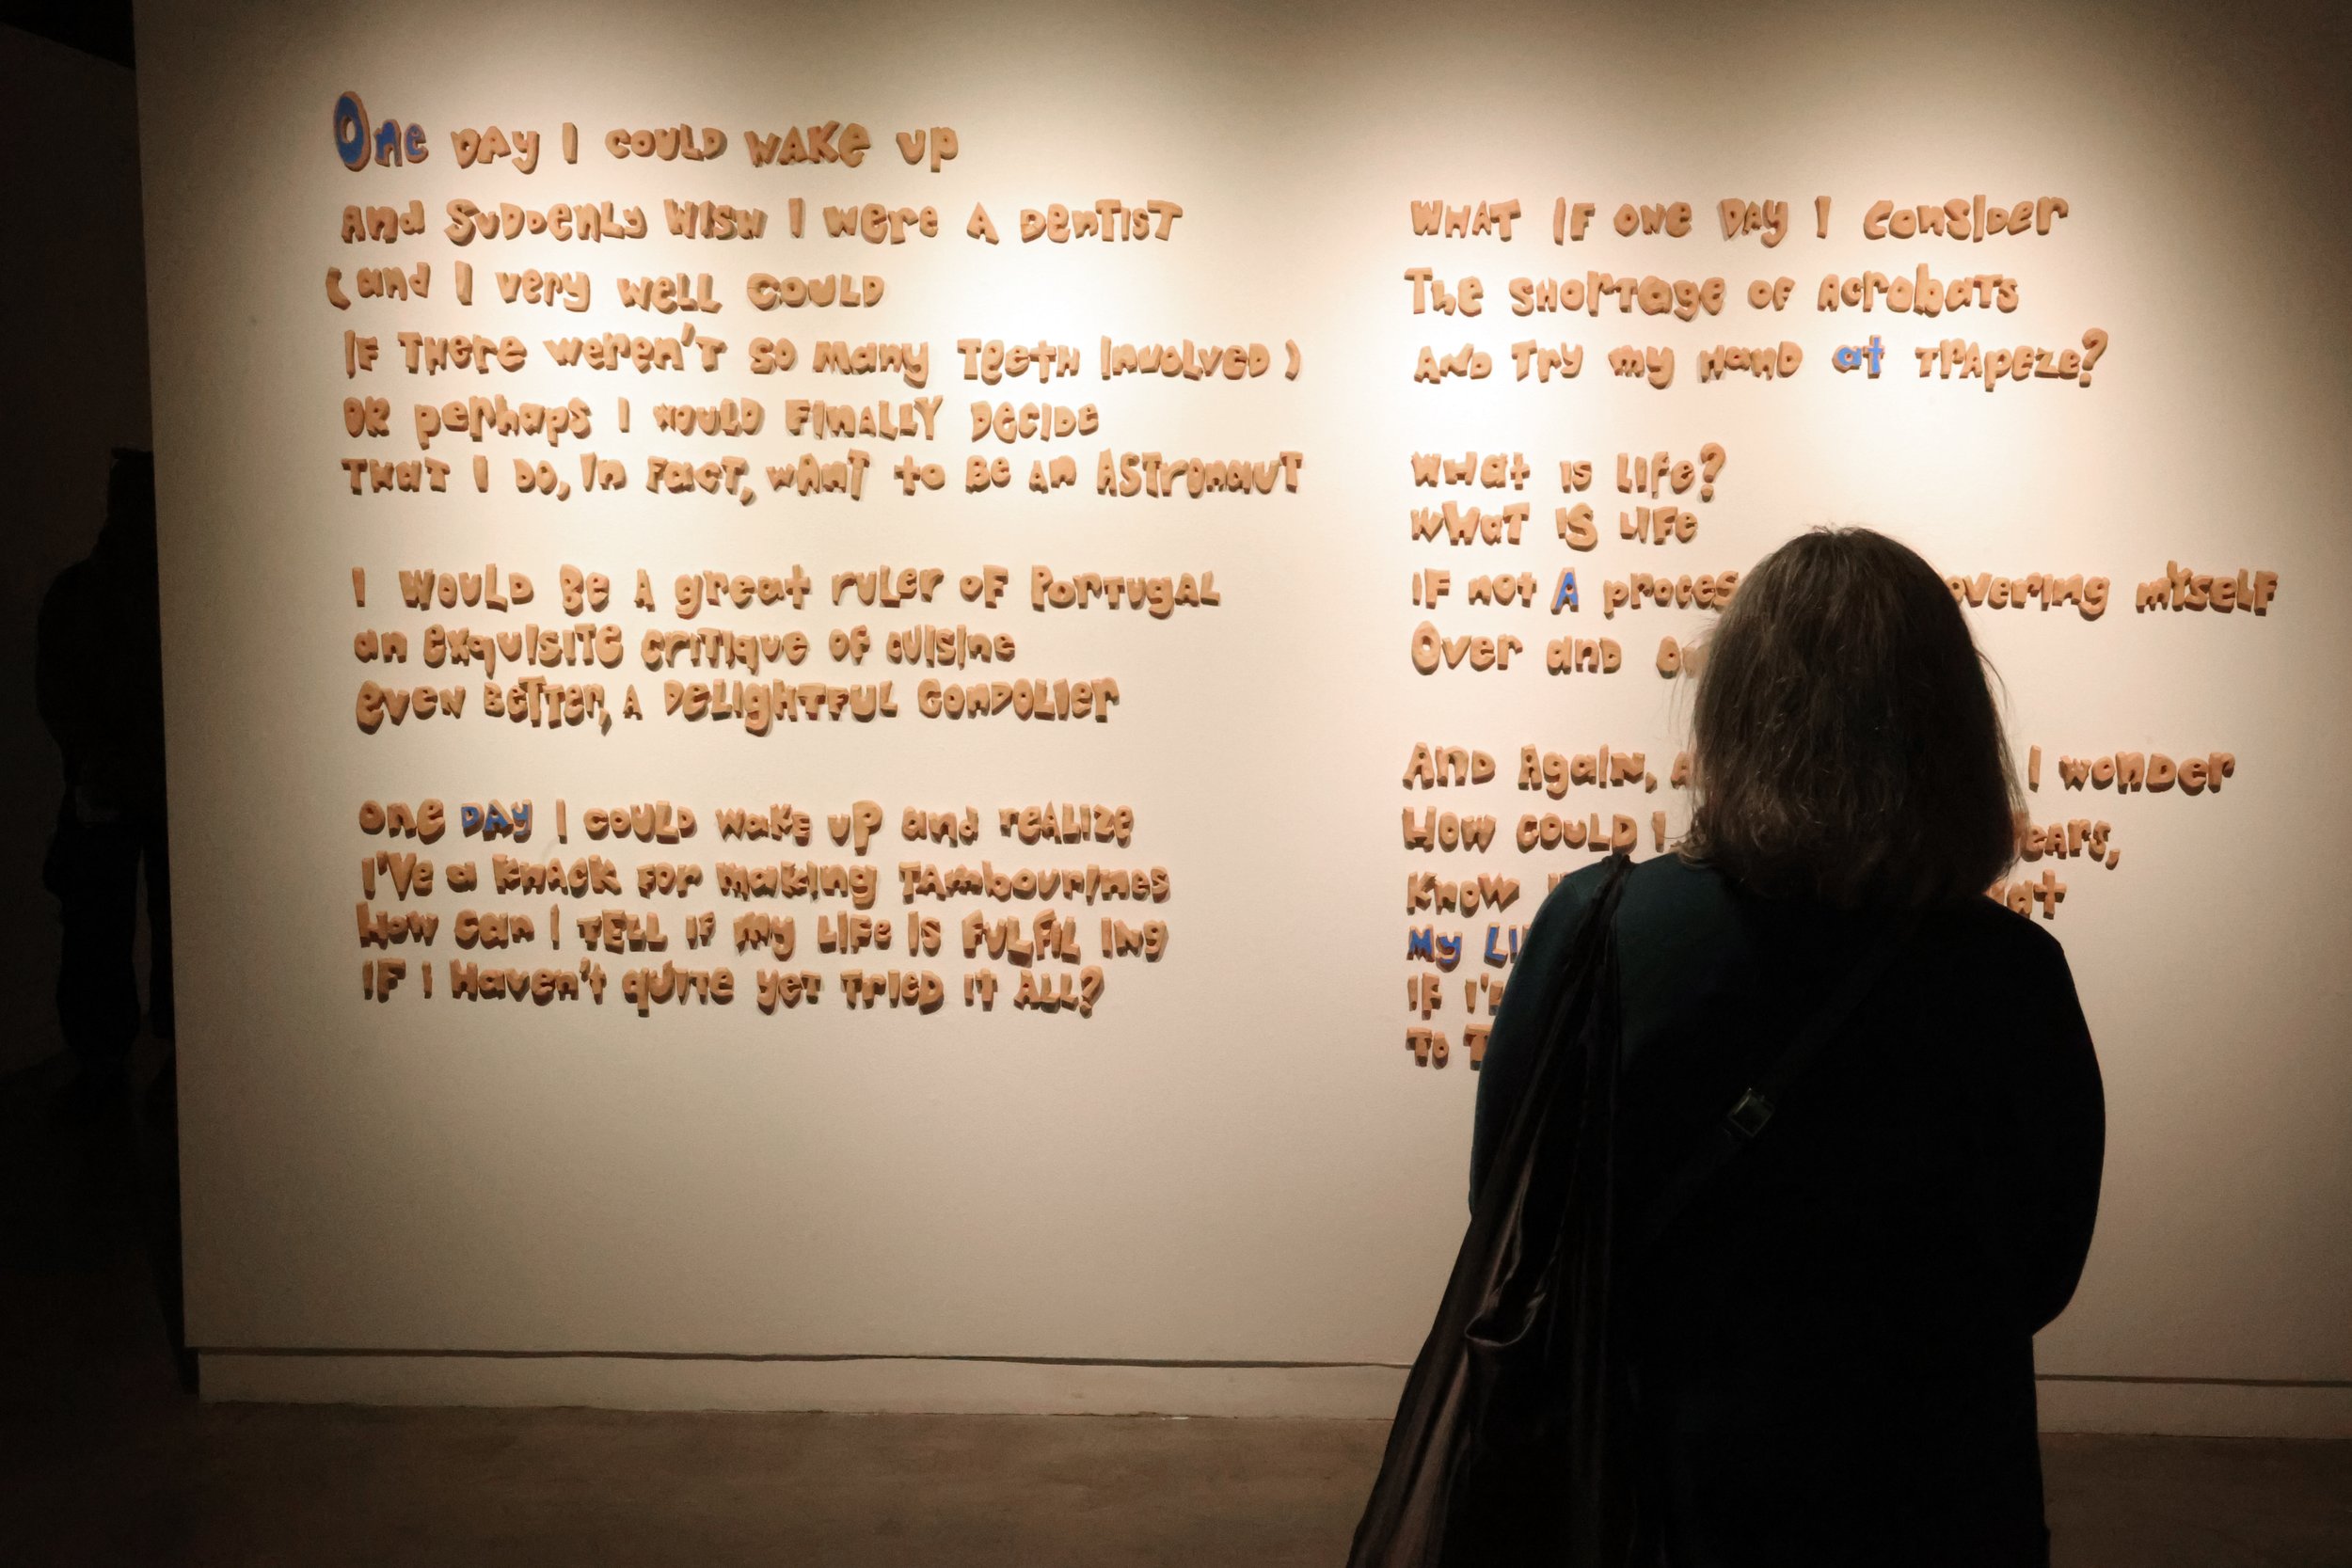 One DAY I COULD WAKE UP
And SUDDENLY WISH I were A DENTIST
(and I very well COULD
IF THere weren't so many TeeTH InvoLVED)
OR perhaps I WOULD FINALLY DECIDE
THaT I DO, In FacT, wAnT to Be An ASTronauT
I WOULD Be A great ruLer OF PORTUgAL
an exquISITE criTIque OF cuIsIne
even BeTTer, A DELIghTFUL GONDOLIer
One DAY I COULD WAKE UP and reALIZe
I'Ve a KNACK FOR making TAmbourInes
How can I TELL IF my LIFe Is FULFIL Ing
IF I Haven't quITe yeT TrIeD IT ALL?
WHAT IF one DAY I ConsIDer
The SHorTage OF AcrobaTs
AnD Try my HanD at TrApeze?
WHat Is LIfe?
WHaT IS LIFe
IF not A overIng mYseLF
Over and
And AgaIn, I wonDer
How COULD
Know
My
IF
To